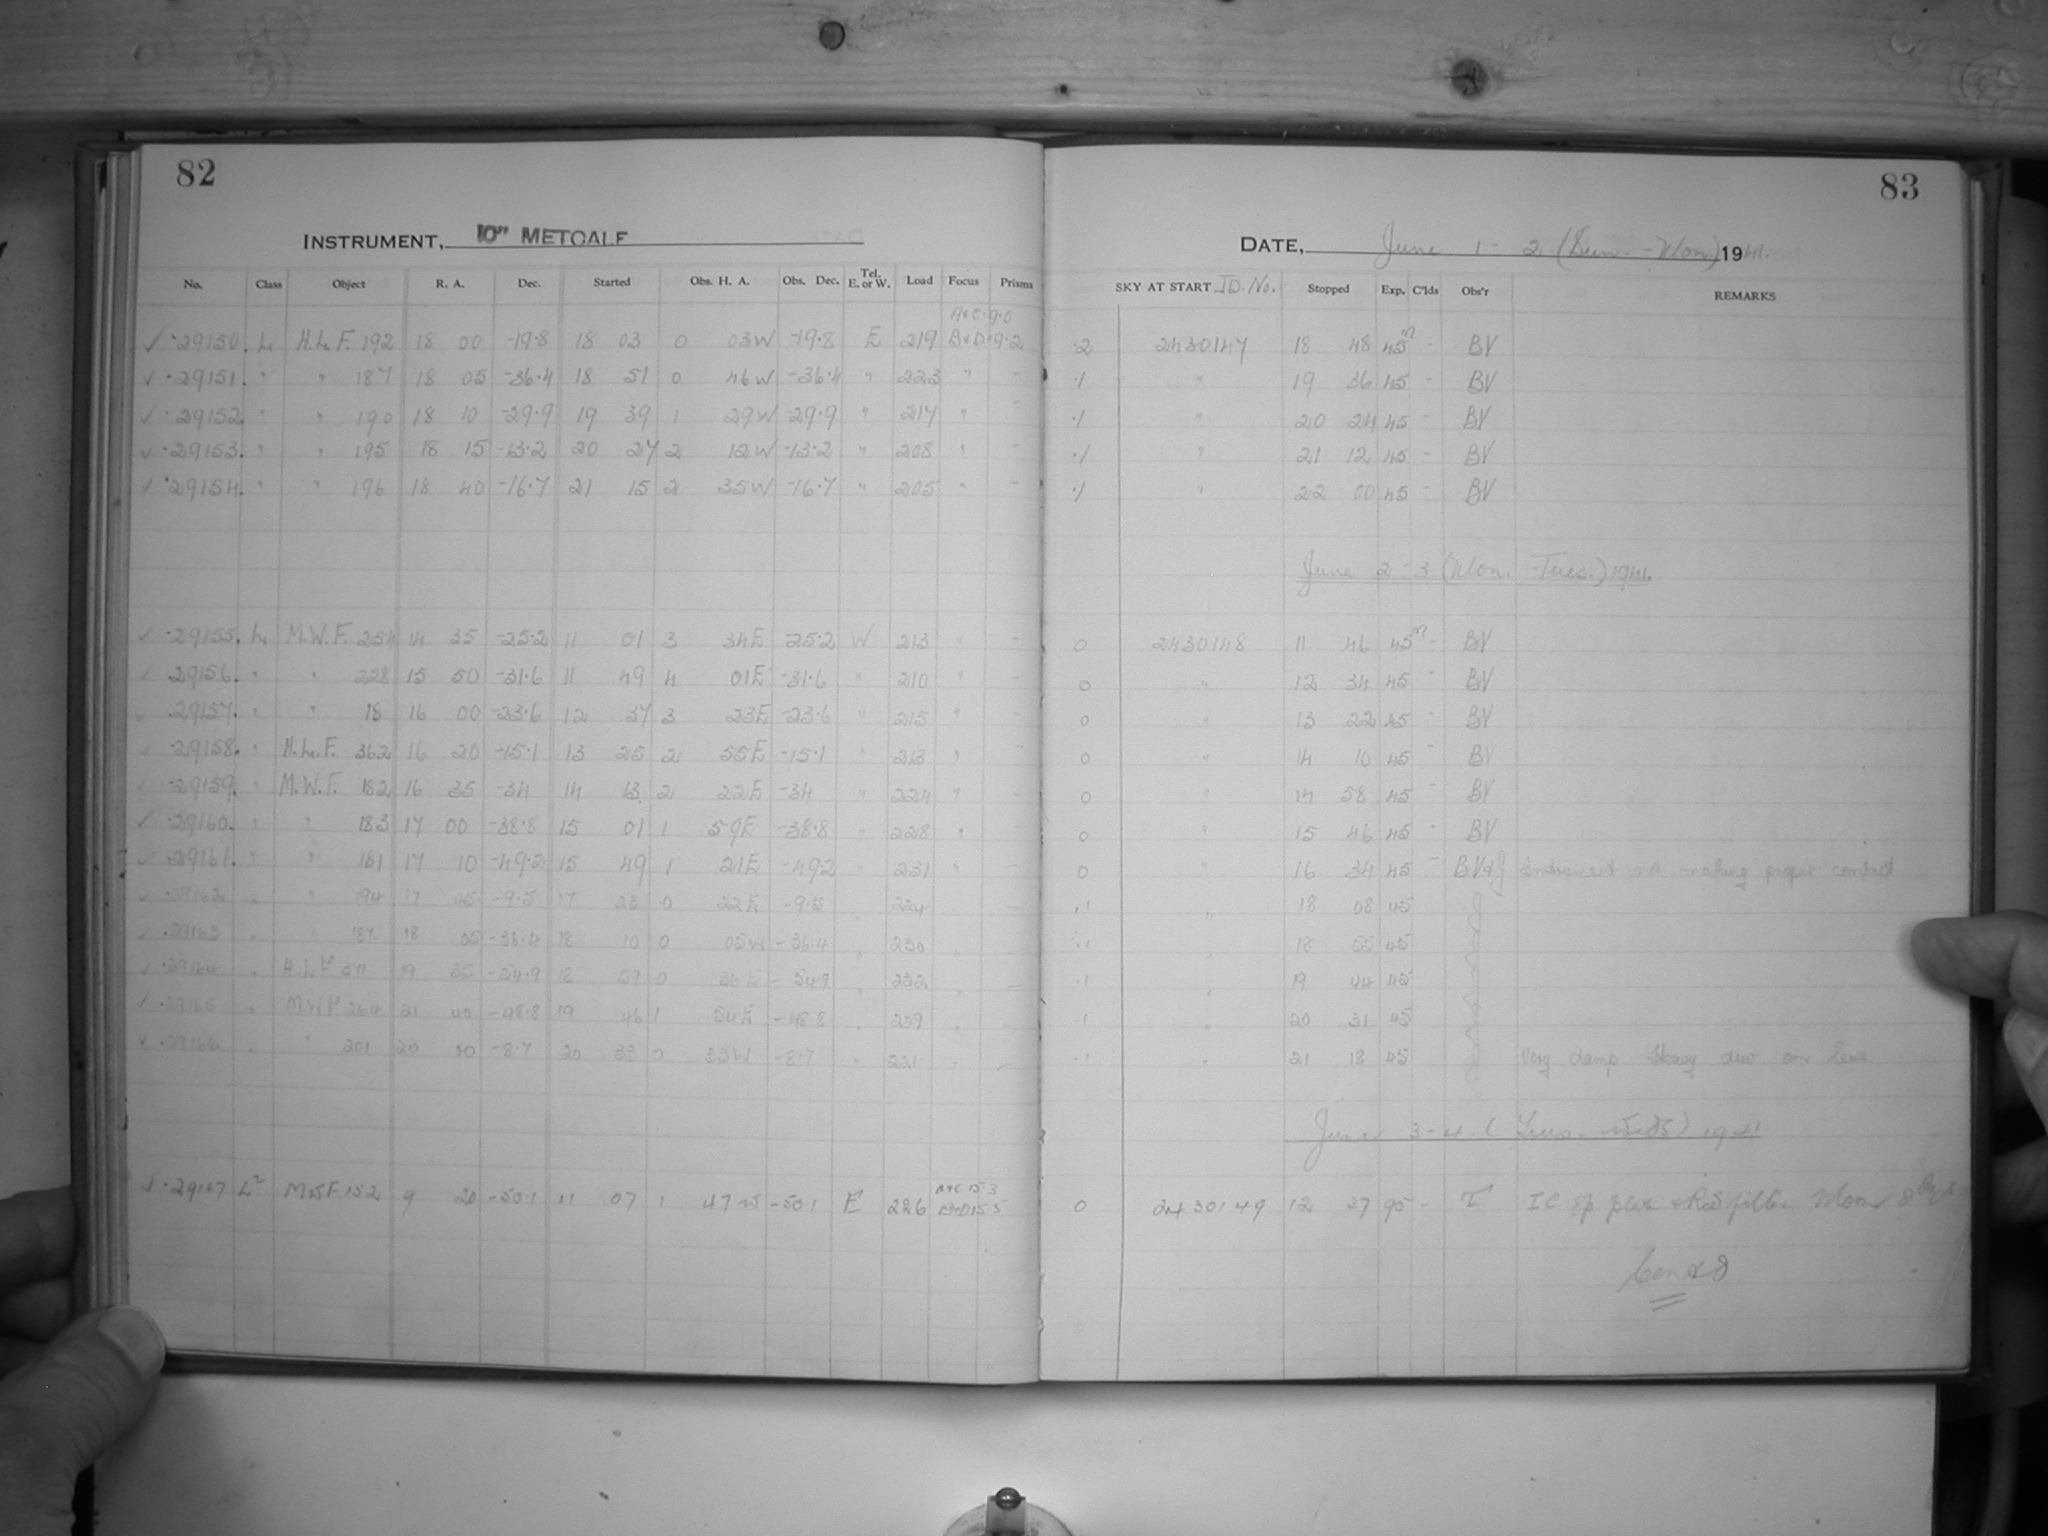 82
INSTRUMENT, 10" METCALF
No. Class Object R. A. Dec. Started Obs. H. A. Obs. Dec. Tel. E. or W. Load Focus Prisms
A&C=9.0
29150. L H.L.F. 192 18 00 -19.8 18 03 0 03W -19.8 E 219 B&D=9.2
29151. " " 187 18 05 -36.4 18 51 0 46W -36.4 " 223 " -
29152. " " 190 18 10 -29.9 19 39 1 29W -29.9 " 217 " -
29153. " " 195 18 15 -13.2 20 27 2 12W -13.2 " 208 " -
29154. " " 196 18 40 -16.7 21 15 2 35W -16.7 " 205 " -
29155. L M.W.F. 254 14 35 -25.2 11 01 3 34E -25.2 W 213 " -
29156. " " 228 15 50 -31.6 11 49 4 01E -31.6 " 210 " -
29157. " " 18 16 00 -23.6 12 37 3 23E -23.6 " 215 " -
29158. " H.L.F. 362 16 20 -15.1 13 25 2 55E -15.1 " 213 " -
29159. " M.W.F. 182 16 35 -34 14 13 2 22E -34 " 224 " -
29160. " " 183 17 00 -38.8 15 01 1 59E -38.8 " 228 " -
29161. " " 181 17 10 -49.2 15 49 1 21E -49.2 " 231 " -
29162 " " 194 17 45 -9.5 17 23 0 22E -9.5 " 224 " -
29163 " " 187 18 05 -36.4 18 10 0 05W -36.4 " 230 " -
29164 " H.L.F 19 35 -54.9 18 59 0 36E -54.9 " 232 " -
29165 " M.W.F 264 21 40 -48.8 19 46 1 54E -48.8 " 239 " -
29166 " " 201 20 00 -8.7 20 33 0 33W -8.7 " 221 " -
29167 L² MWF 152 9 20 -50.1 11 07 1 47W -50.1 E 226 B&D 15.5
83
DATE, June 1-2 (Sun.-Mon) 1941.
SKY AT START J.D. No. Stopped Exp. C'lds Obs'r REMARKS
.2 2430147 18 48 45m - BV
.1 " 19 36 45 - BV
.1 " 20 24 45 - BV
.1 " 21 12 45 - BV
.1 " 22 00 45 - BV
June 2-3 (Mon.-Tues.) 1941.
0 2430148 11 46 45m - BV
0 " 12 34 45 - BV
0 " 13 22 45 - BV
0 " 14 10 45 - BV
0 " 14 58 45 - BV
0 " 15 46 45 - BV
0 " 16 34 45 - BV&J Instrument not making proper contact
.1 " 18 08 45 J
.1 " 18 55 45 J
.1 " 19 44 45 J
.1 " 20 31 45 J
.1 " 21 18 45 J Very damp Heavy dew on lens
June 3-4 (Tues.-Wed) 1941
0 2430149 12 37 90 - T I C Sp. plate & Red filter Moon 8